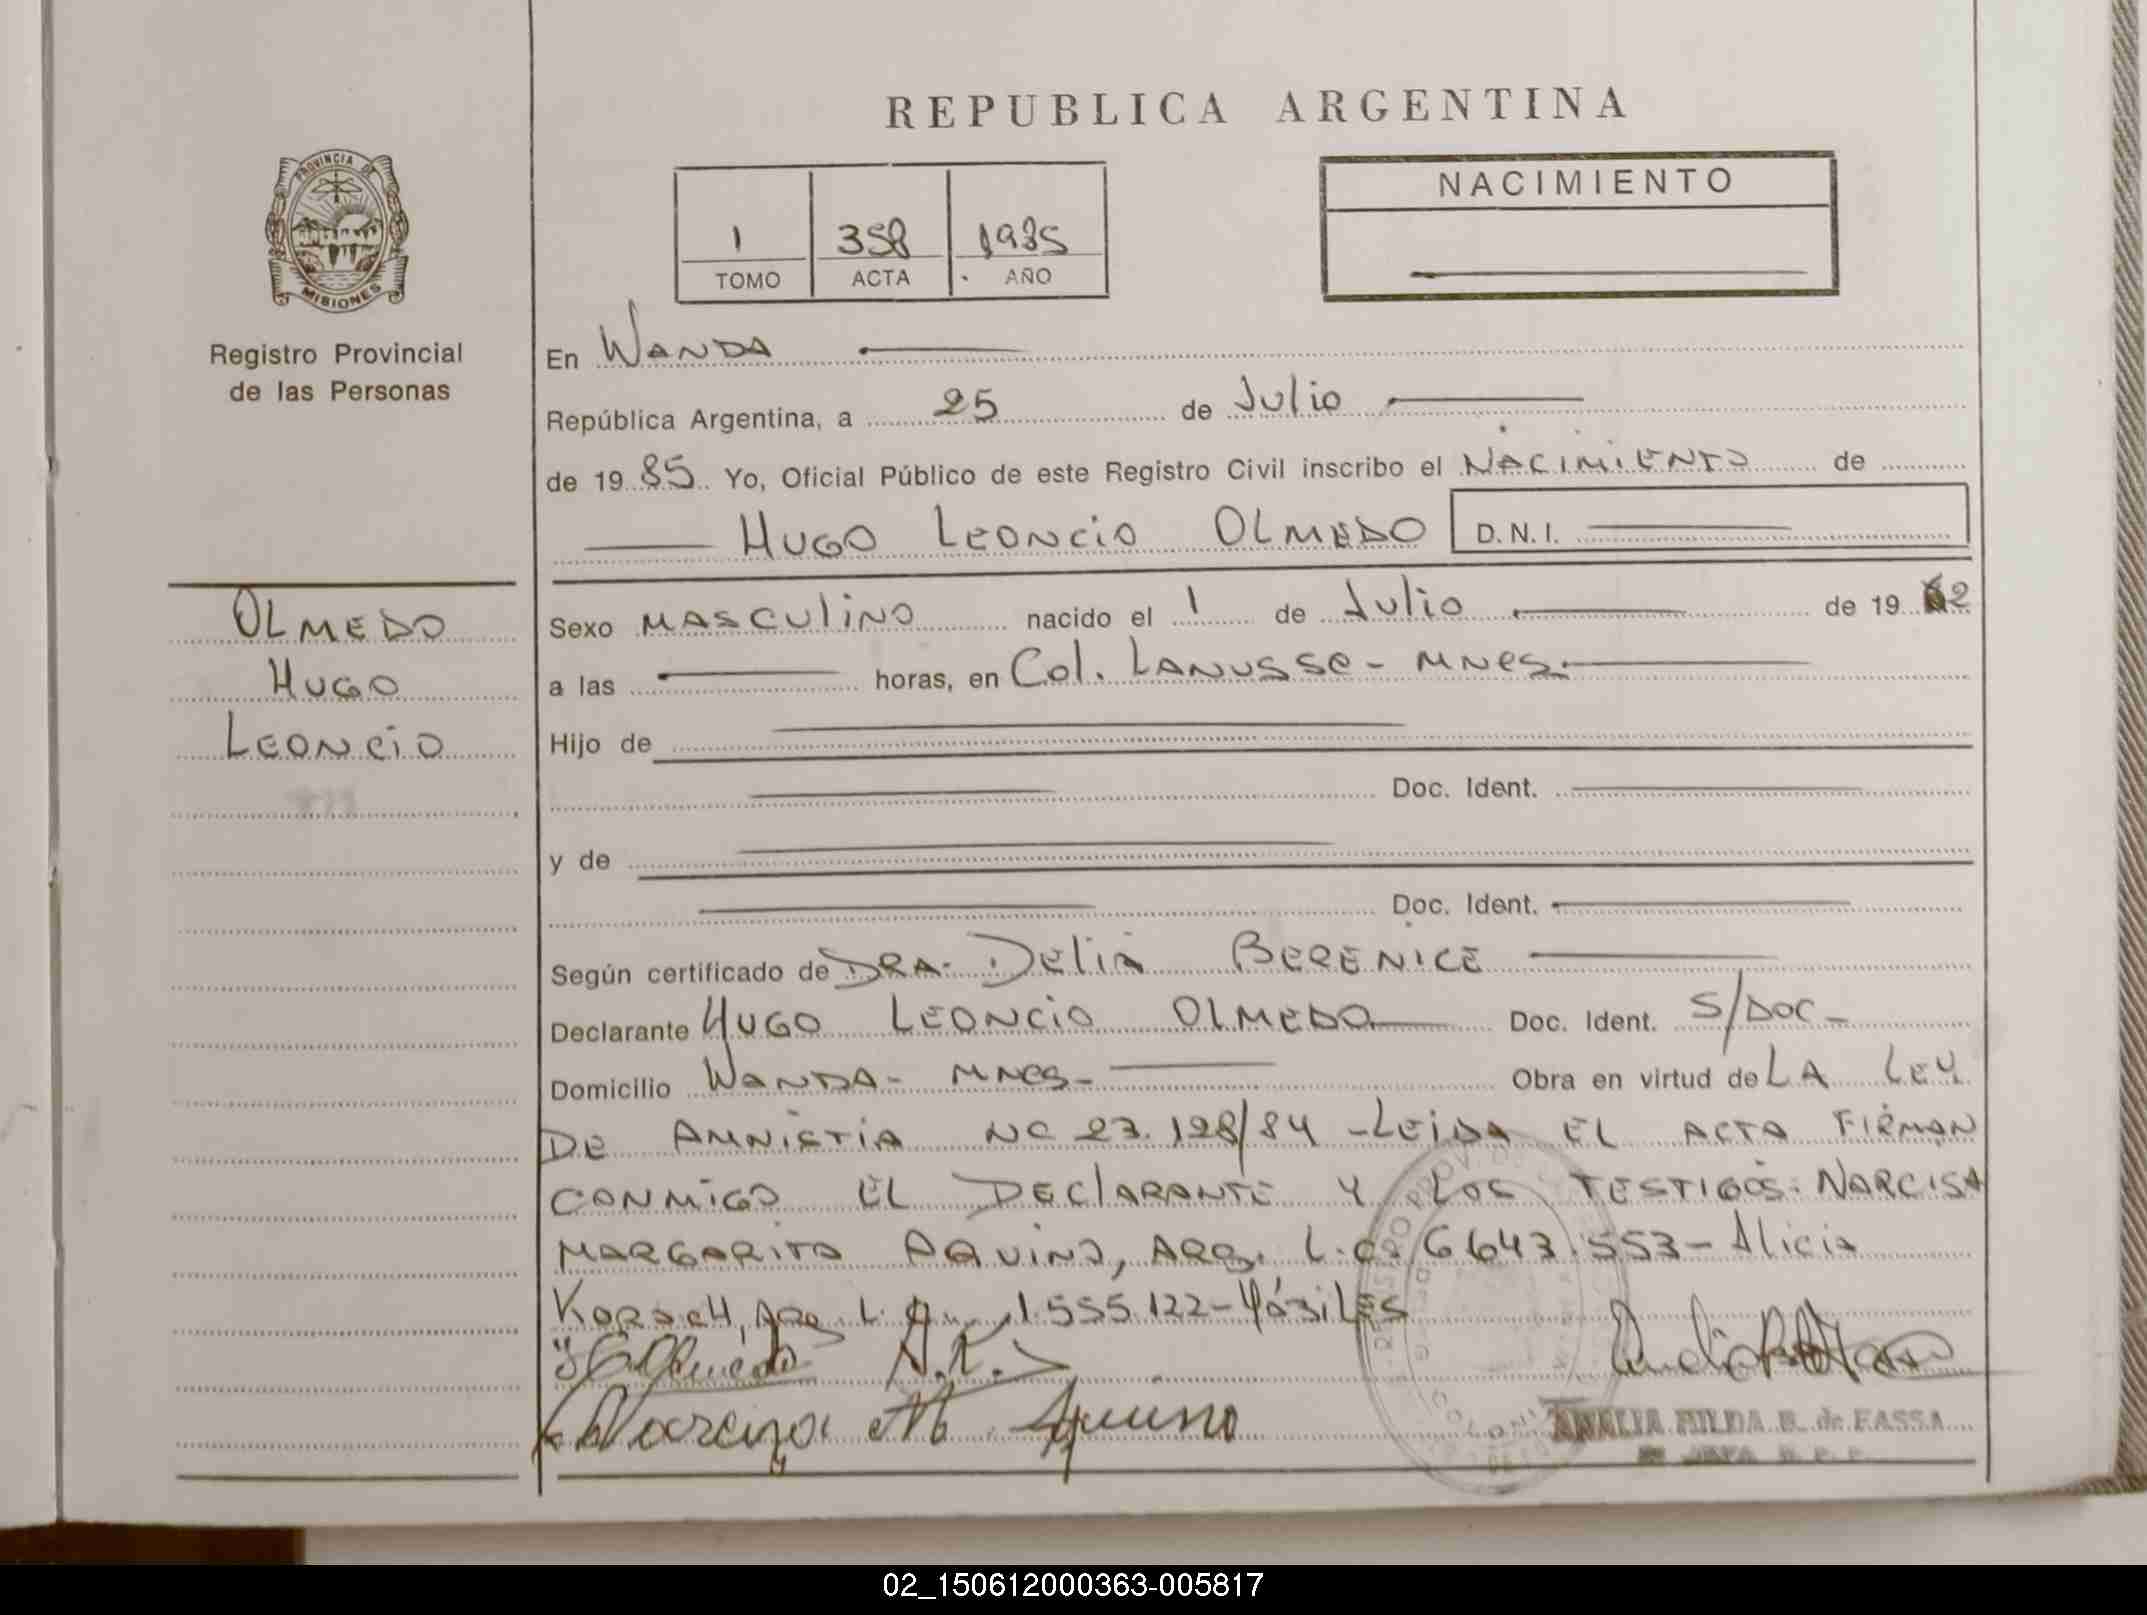 REPUBLICA ARGENTINA
PROVINCIA DE
MISIONES
Registro Provincial
de las Personas
1 358 1985
TOMO ACTA AÑO
NACIMIENTO
En WANDA
República Argentina, a 25 de Julio
de 1985 Yo, Oficial Público de este Registro Civil inscribo el NACIMIENTO de
HUGO LEONCIO OLMEDO D.N.I.
OLMEDO
HUGO
LEONCIO
Sexo MASCULINO nacido el 1 de Julio de 19 62
a las horas, en Col. LANUSSE - MNES.
Hijo de
Doc. Ident.
y de
Doc. Ident.
Según certificado de DRA. DELIA BERENICE
Declarante HUGO LEONCIO OLMEDO Doc. Ident. S/DOC -
Domicilio WANDA - MNES - Obra en virtud de LA LEY
DE AMNISTIA Nº 23.128/84 - LEIDA EL ACTA FIRMAN
CONMIGO EL DECLARANTE Y LOS TESTIGOS: NARCISA
MARGARITA AQUINO, ARG. L.C. 6643.553 - Alicia
KORSCH, ARG. L. 1.555.122 -
Olmedo A.K.
Narciza M. Aquino
AMALIA HILDA B. de FASSA
JEFA R.P.P.
02_150612000363-005817